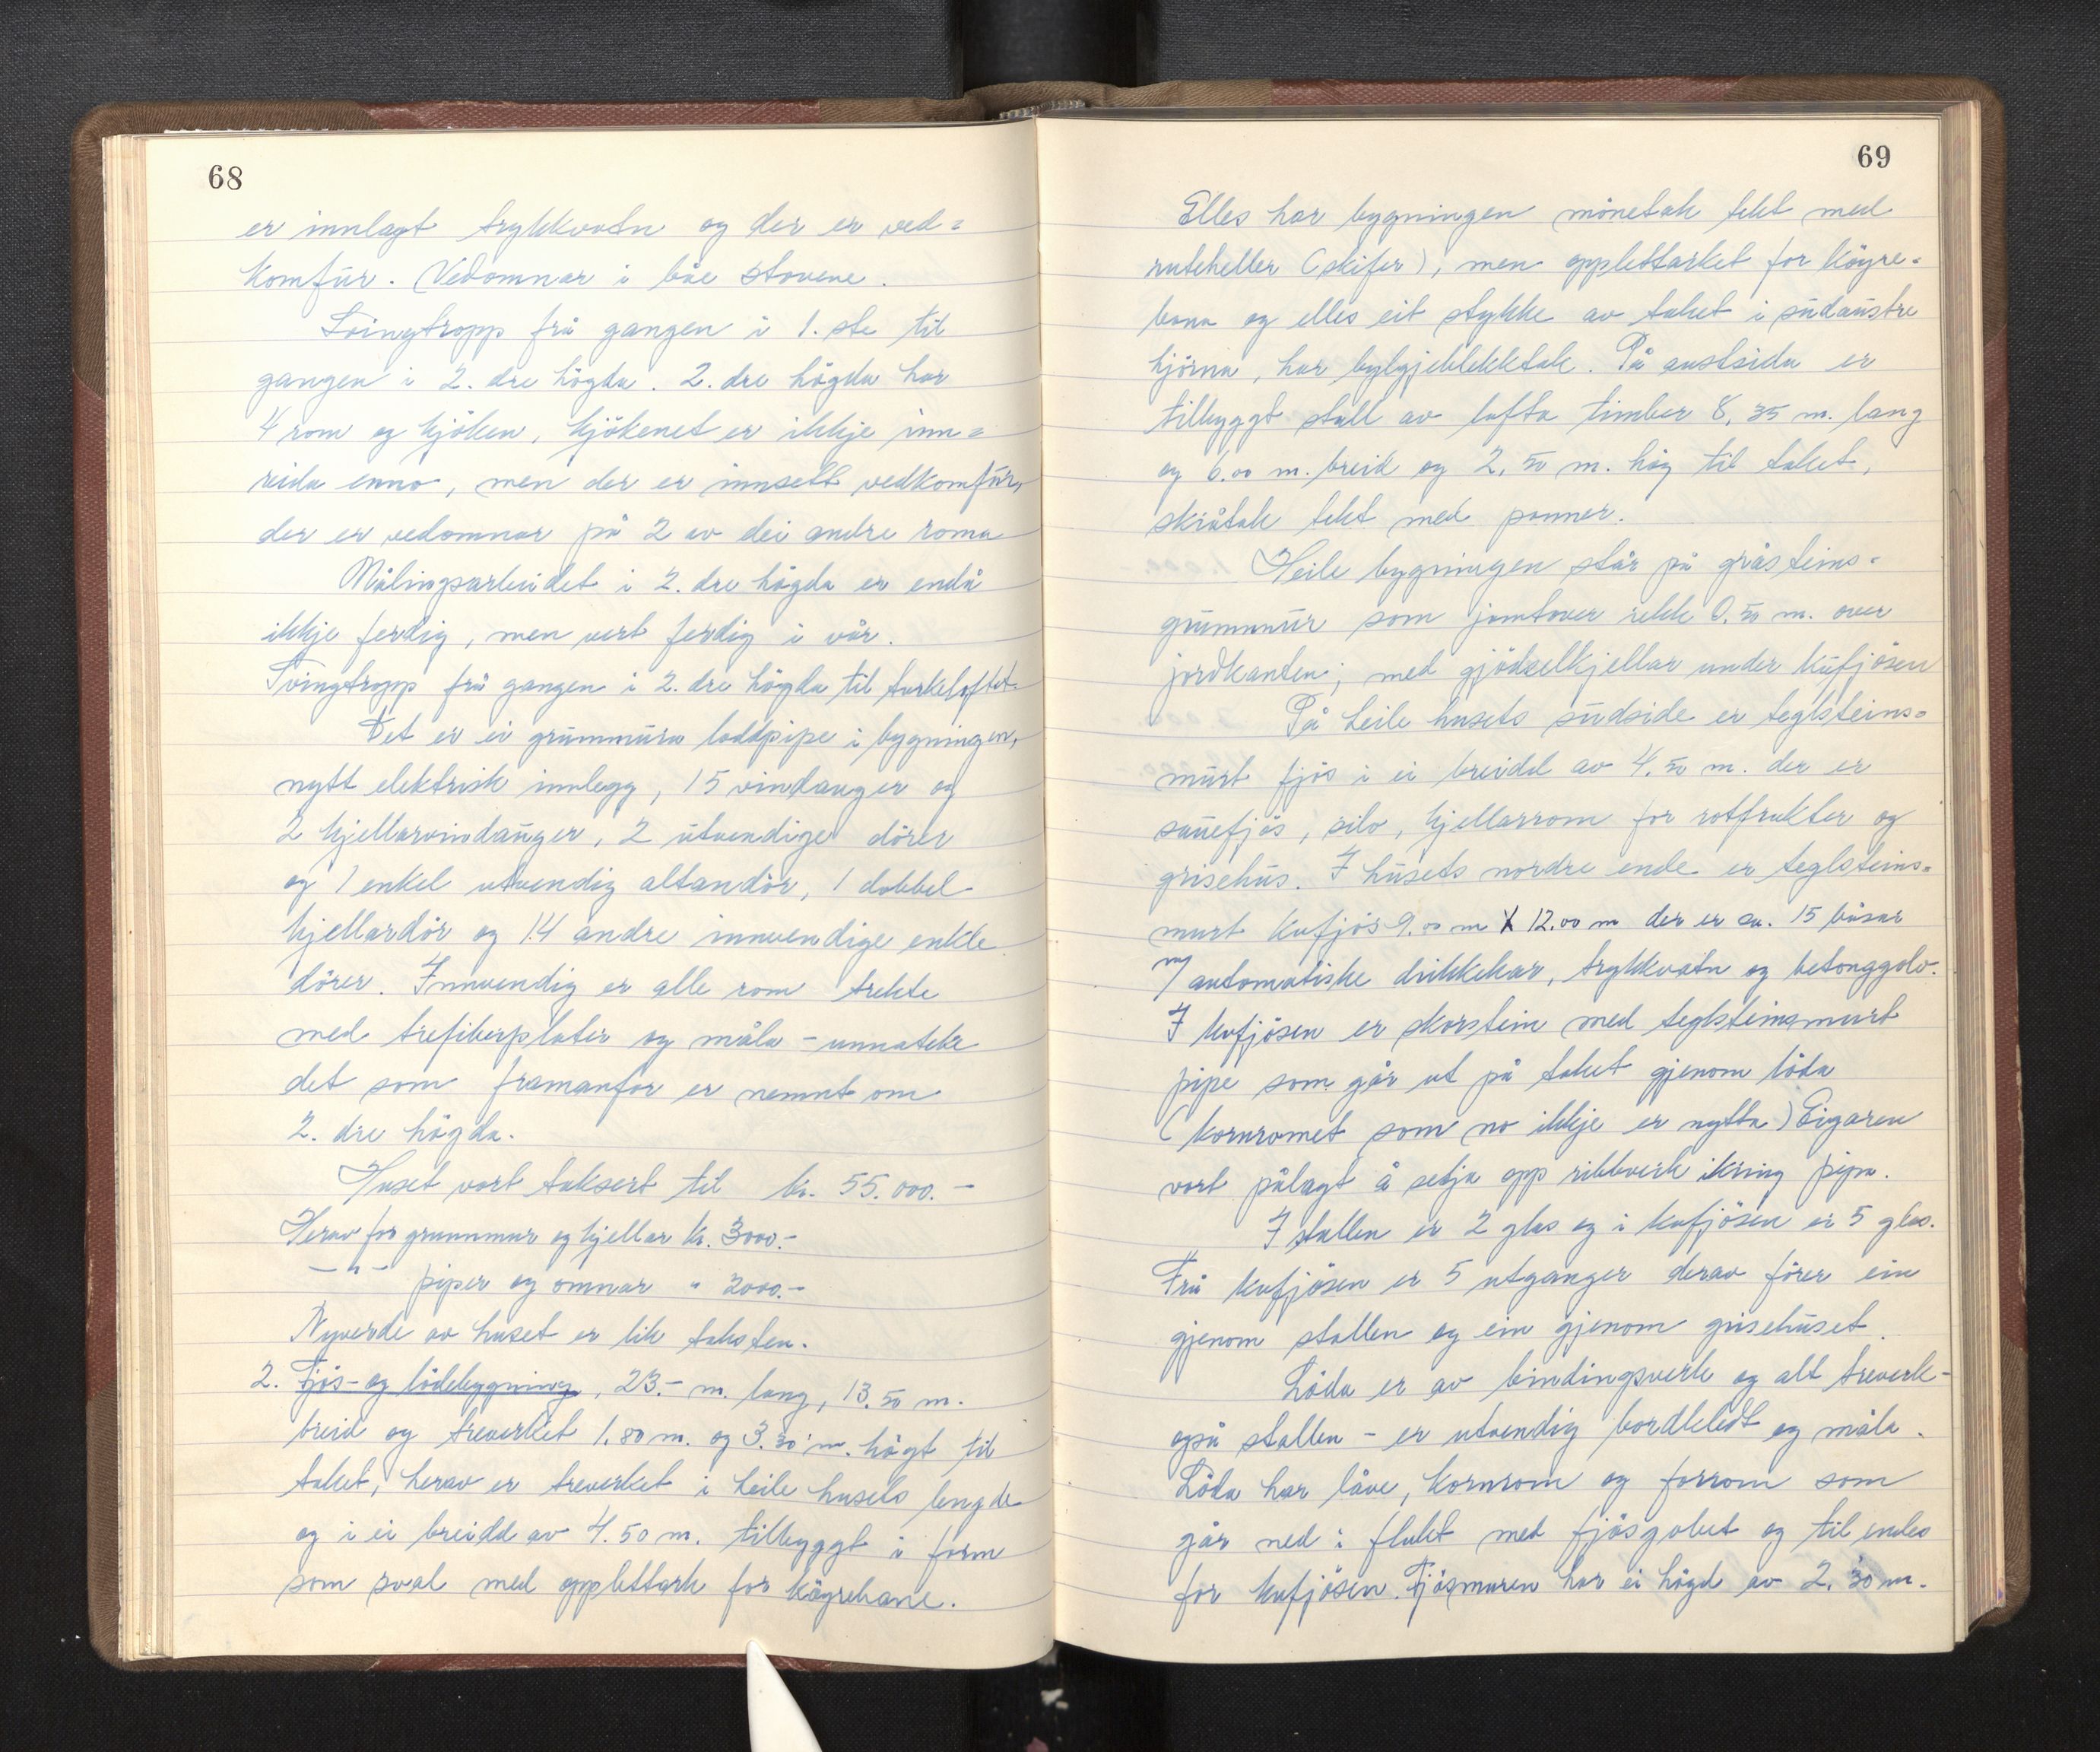 68
er innlagt trykkvatn og der er ved=
komfür. Vedomnar i båe stovene.
Svingtropp frå gangen i 1. ste til
gangen i 2. dre högda. 2. dre högda har
4 rom og kjöken, kjökenet er ikkje inn=
reida enno, men der er innsett vedkomfür,
der er vedomnar på 2 av dei andre roma
Målingsarbeidet i 2. dre högda er endå
ikkje ferdig, men vert ferdig i vår.
Svingtropp frå gangen i 2. dre högda til turkeloftet.
Det er ei grunnmüra loddpipe i bygningen,
nytt elektrisk innlegg, 15 vindauger og
2 kjellarvindaüger, 2 ütvendige dörer
og 1 enkel utvendig altandör, 1 dobbel
kjellardör og 14 andre innvendige enkle
dörer. Innvendig er alle rom trekte
med trefiberplater og måla - unnateke
det som framanfor er nemnt om
2. dre högda.
Huset vart taksert til kr. 55.000.-
Herav for grunnmur og kjellar kr. 3000.-
-"- piper og omnar " 2000.-
Nyverde av huset er lik taksten.
2. Fjös- og lödebygning, 23.- m. lang, 13.50 m.
breid og treverket 1.80 m. og 3.30 m. högt til
taket, herav er treverket i heile husets lengde
og i ei breidd av 4.50 m. tilbyggt i form
som sval med opplettark for köyrebane.
69
Elles har bygningen mönetak tekt med
ruteheller (skifer), men opplettarket for köyre=
bana og elles eit stykke av taket i südaustre
hjörna, har bylgjeblekktak. På austsida er
tilbyggt stall av lafta timber 8,35 m. lang
og 6.00 m. breid og 2.50 m. hög til taket,
skråtak tekt med panner.
Heile bygningen står på gråsteins=
grunnmür som jamtover rekk 0.50 m. over
jordkanten; med gjödselkjellar under küfjösen
På heile husets südside er teglsteins=
mürt fjös i ei breidd av 4.50 m. der er
sauefjös, silo, kjellarrom for rotfrukter og
grisehüs. I hüsets nordre ende er teglsteins=
murt kufjös 9.00 m X 12.00 m der er ca. 15 båsar
m/ automatiske drikkekar, trykkvatn og betonggolv.
I kufjösen er skorstein med teglsteinsmurt
pipe som går ut på taket gjenom löda
(kornromet som no ikkje er nytta) Eigaren
vart pålagt å setja opp ribbverk ikring pipa.
I stallen er 2 glas og i kufjösen er 5 glas.
Frå kufjösen er 5 utganger derav förer ein
gjenom stallen og ein gjenom grisehüset.
Löda er av bindingsverk og alt treverk -
også stallen - er utvendig bordkledt og måla.
Löda har låve, kornrom og forrom som
går ned i flukt med fjösgolvet og til endes
for kufjösen. Fjösmuren har ei högd av 2.30 m.